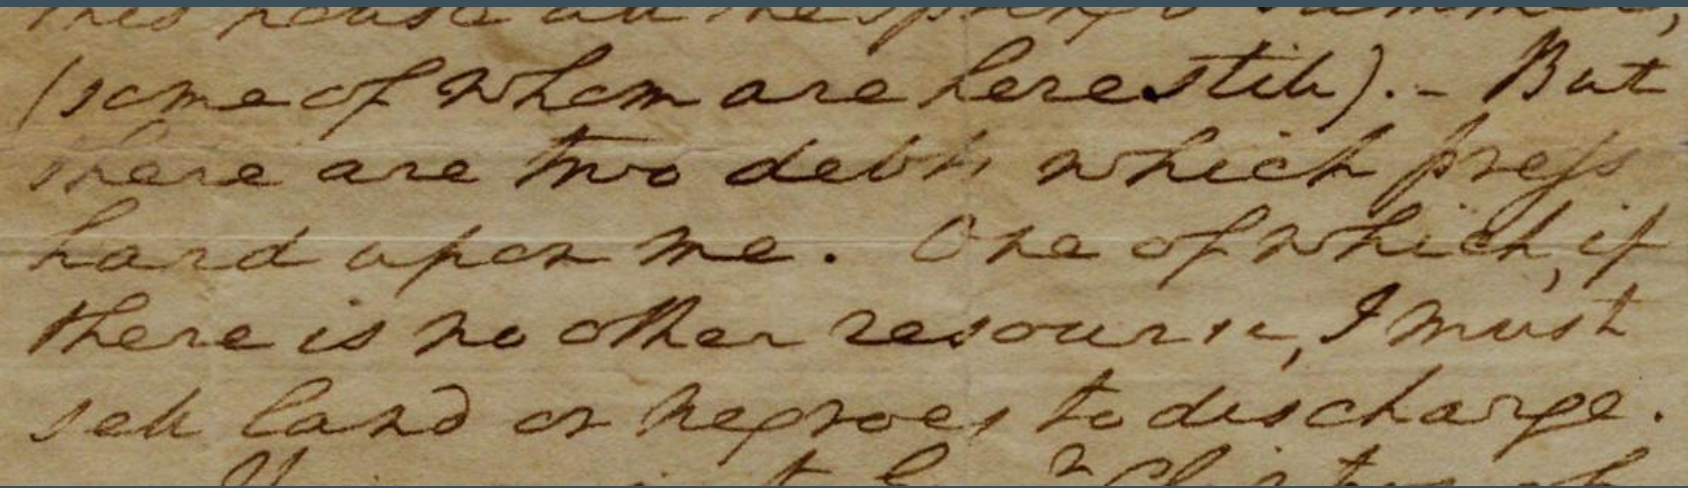 (some of whom are here still).- But
there are two debts which press
hard upon me. One of which, if
there is no other resource, I must
sell land or negroes to discharge.